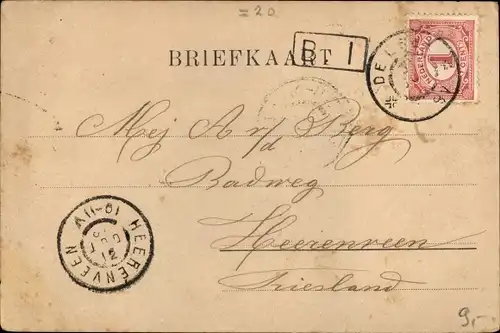 = 20
BRIEFKAART
B 1
NEDERLAND
1
CENT
Mej A v/d Berg
Badweg
Heerenveen
Friesland
HEERENVEEN
9,-